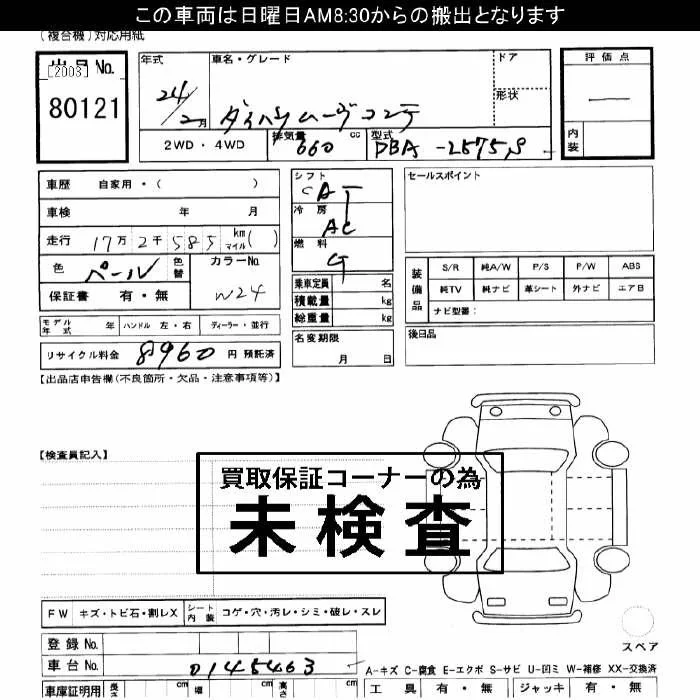 この車両は日曜日AM8:30からの搬出となります
(複合機)対応用紙
出品No.
[2003]
80121
年式
24/2月
車名・グレード
ダイハツムーヴコンテ
ドア
形状
評価点
—
内装
2WD・4WD
排気量
660
cc
型式
DBA-L575S
車歴
自家用・(　　)
車検
年　月
走行
17万2千585 km マイル( )
色
パール
色替
カラーNo.
W24
保証書
有・無
シフト
CAT
冷房
AC
燃料
G
乗車定員
名
積載量
kg
総重量
kg
セールスポイント
装備品
S/R 純A/W P/S P/W ABS
純TV 純ナビ 革シート 外ナビ エアB
ナビ型番:
モデル年式
年
ハンドル 左・右
ディーラー・並行
名変期限
月　日
後日品
リサイクル料金
8960
円 預託済
【出品店申告欄(不良箇所・欠品・注意事項等)】
【検査員記入】
買取保証コーナーの為
未検査
FW
キズ・トビ石・割レX
シート内装
コゲ・穴・汚レ・シミ・破レ・スレ
スペア
登録No.
車台No.
0145463
A-キズ C-腐食 E-エクボ S-サビ U-凹ミ W-補修 XX-交換済
車庫証明用
長さ
cm
幅
cm
高さ
cm
工具
有・無
ジャッキ
有・無